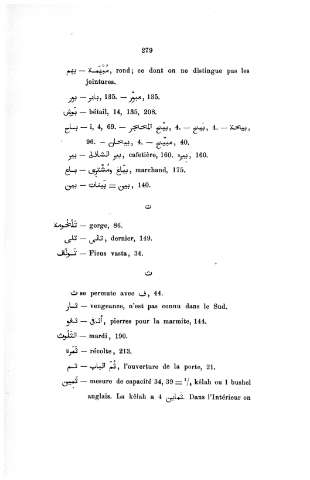 279
بهم — مُبْهَمة, rond; ce dont on ne distingue pas les
jointures.
بور — باير, 135. — مبوّر, 135.
بَوْش — bétail, 14, 135, 208.
بياح — 1, 4, 69. — 4. — بيّح, 4. — بياحة,
96. — 4. — 40.
بير — بير الشاذلى, cafetière, 160. بيره, 160.
بياع — بيّاع ومُشْترى, marchand, 175.
بين — بينات = بين, 140.
ت
— gorge, 86.
تلى — تالى, dernier, 149.
تـولَق — Ficus vasta, 34.
ث
ث se permute avec ف, 44.
ثـار — vengeance, n'est pas connu dans le Sud.
ثفو — أثفى, pierres pour la marmite, 144.
الثلوث — mardi, 190.
ثَمَرة — récolte, 213.
ثـم — ثُمّ الباب, l'ouverture de la porte, 21.
ثمين — mesure de capacité 34, 39 = kélah ou 1 bushel
anglais. La kélah a 4 ثمانين. Dans l'Intérieur on